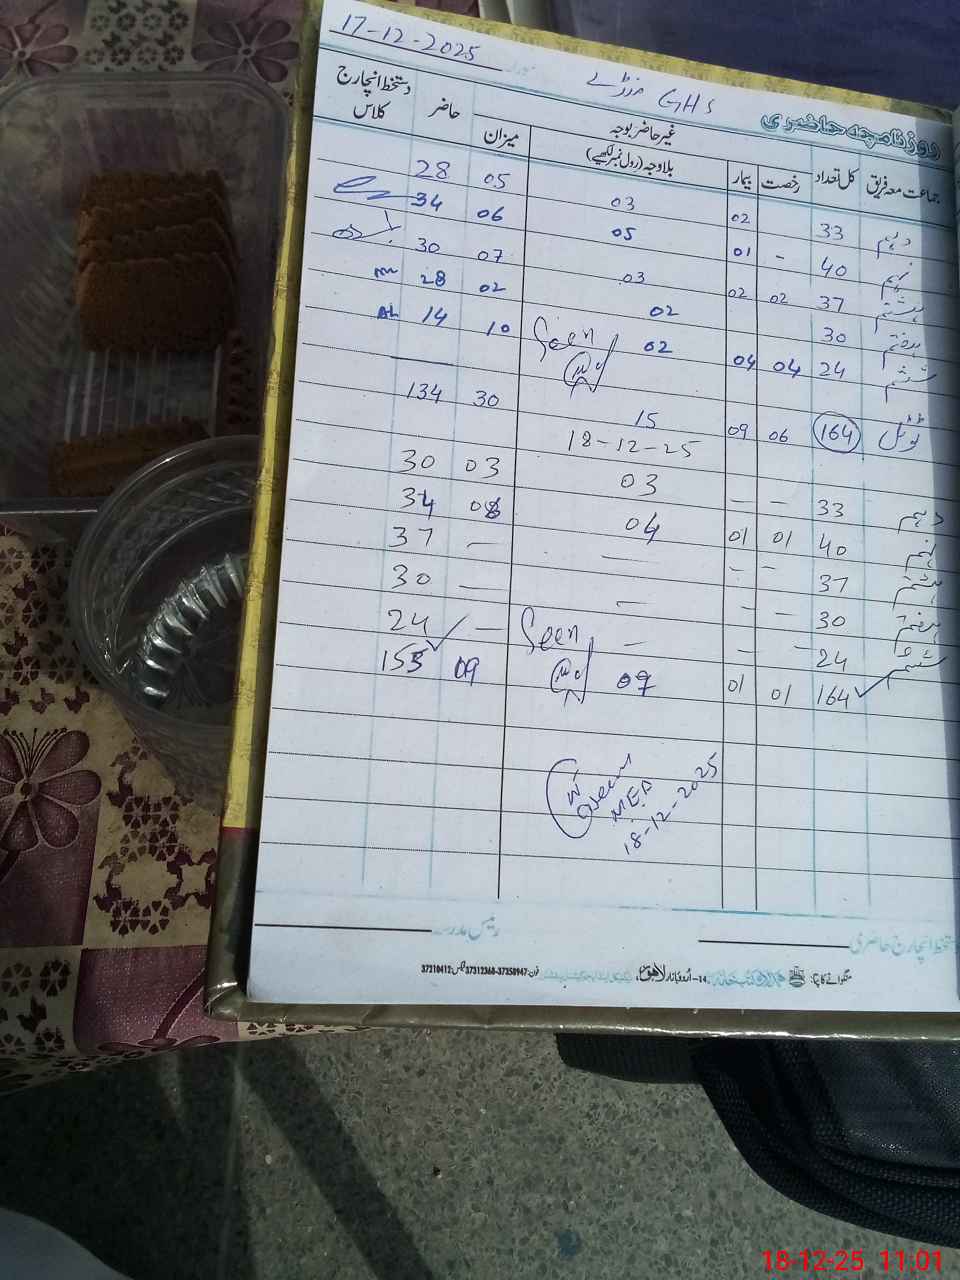 17-12-2025
GHS
روزنامچہ حاضری
جماعت معہ فریق کل تعداد رخصت بیمار غیر حاضر بوجہ بلاوجہ (رول نمبر لکھیے) میزان حاضر دستخط انچارج کلاس
دہم 33 02 03 05 28
نہم 40 - 01 05 06 34
ہشتم 37 02 02 03 07 30
ہفتم 30 02 02 28
ششم 24 04 04 02 10 14
Seen
ٹوٹل 164 06 09 15 30 134
18-12-25
دہم 33 — — 03 03 30
نہم 40 01 01 04 34
ہشتم 37 - - — — 37
ہفتم 30 — - — — 30
ششم 24 - — - — 24
Seen
164 01 01 07 09 155
M.E.A
18-12-2025
دستخط انچارج حاضری
رئیس مدرسہ
منگوانے کا پتہ: 14-اردو بازار لاہور، فون:37350947-37312368 فیکس:37210412
18-12-25 11:01